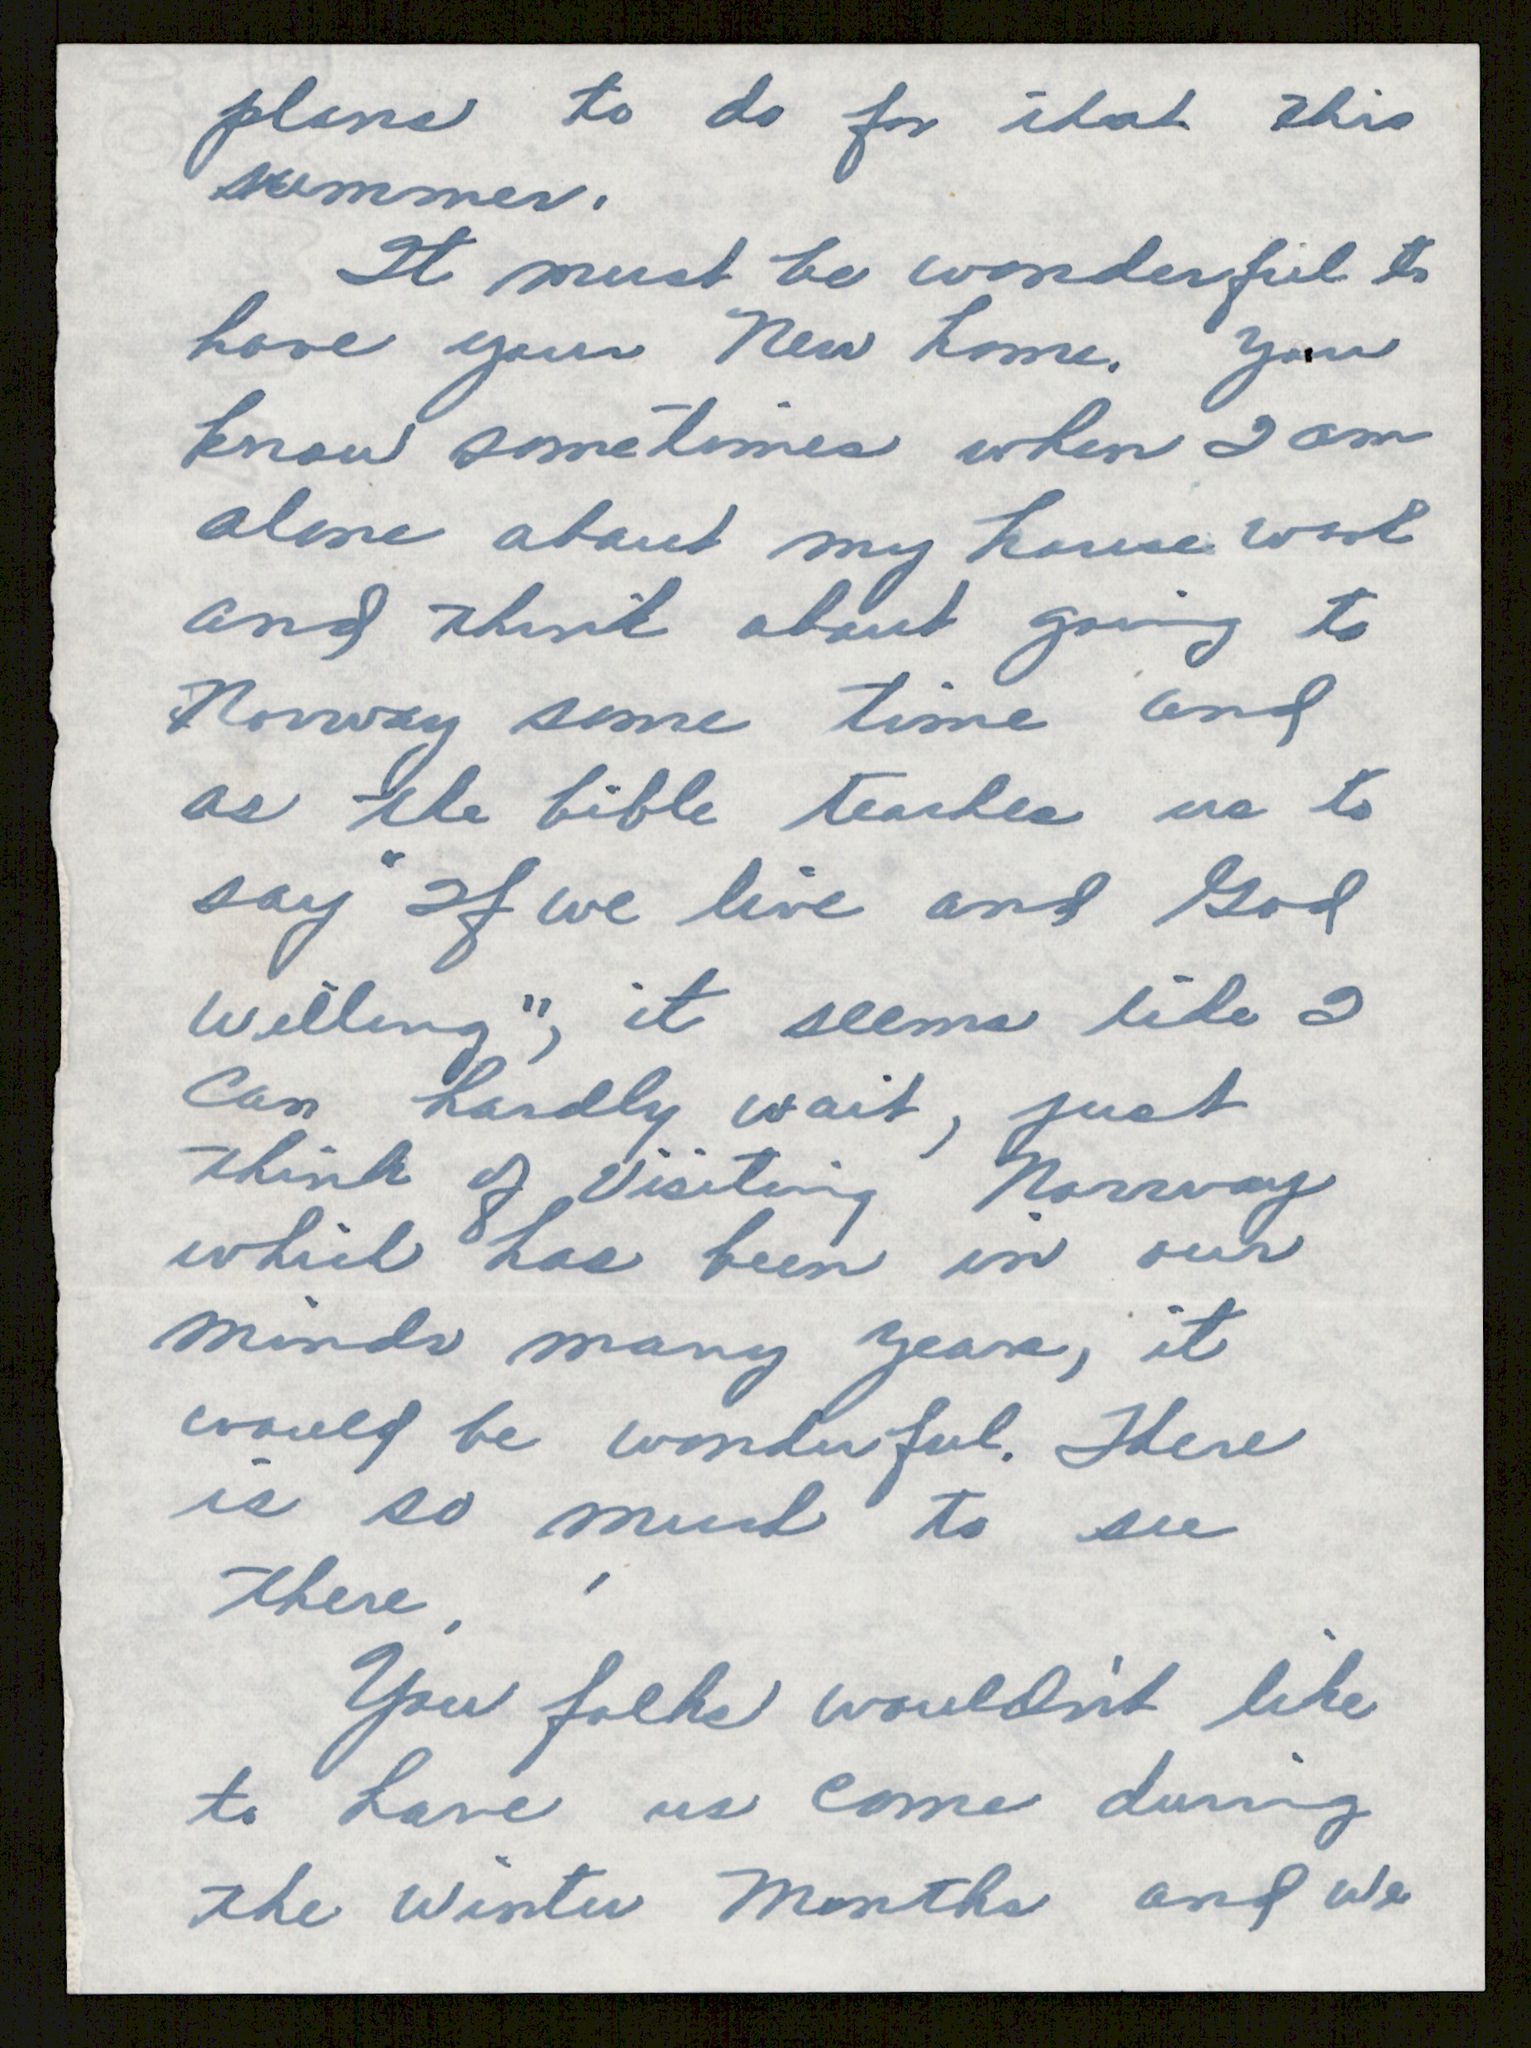 plans to do for that this
summer.
It must be wonderful to
have your New home. You
know sometimes when I am
alone about my house work
and think about going to
Norway some time and
as the bible teaches us to
say "If we live and God
willing", it seems like I
can hardly wait, just
think of Visiting Norway
which has been in our
minds many years, it
would be wonderful. There
is so much to see
there.
You folks wouldn't like
to have us come during
the winter months and we